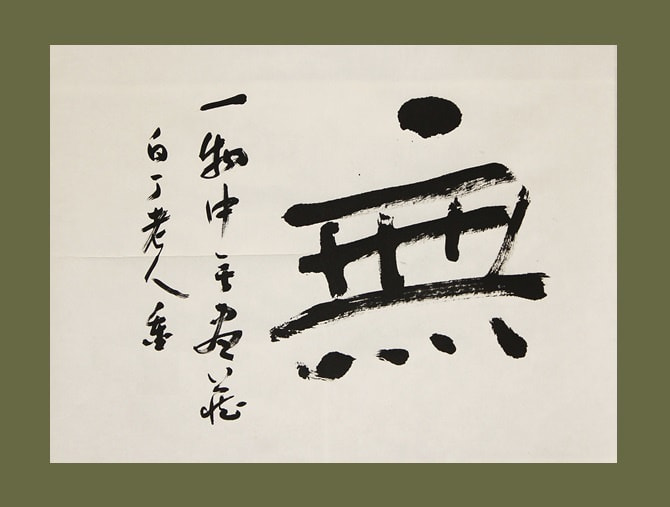 無
一物中無盡藏
白丁老人